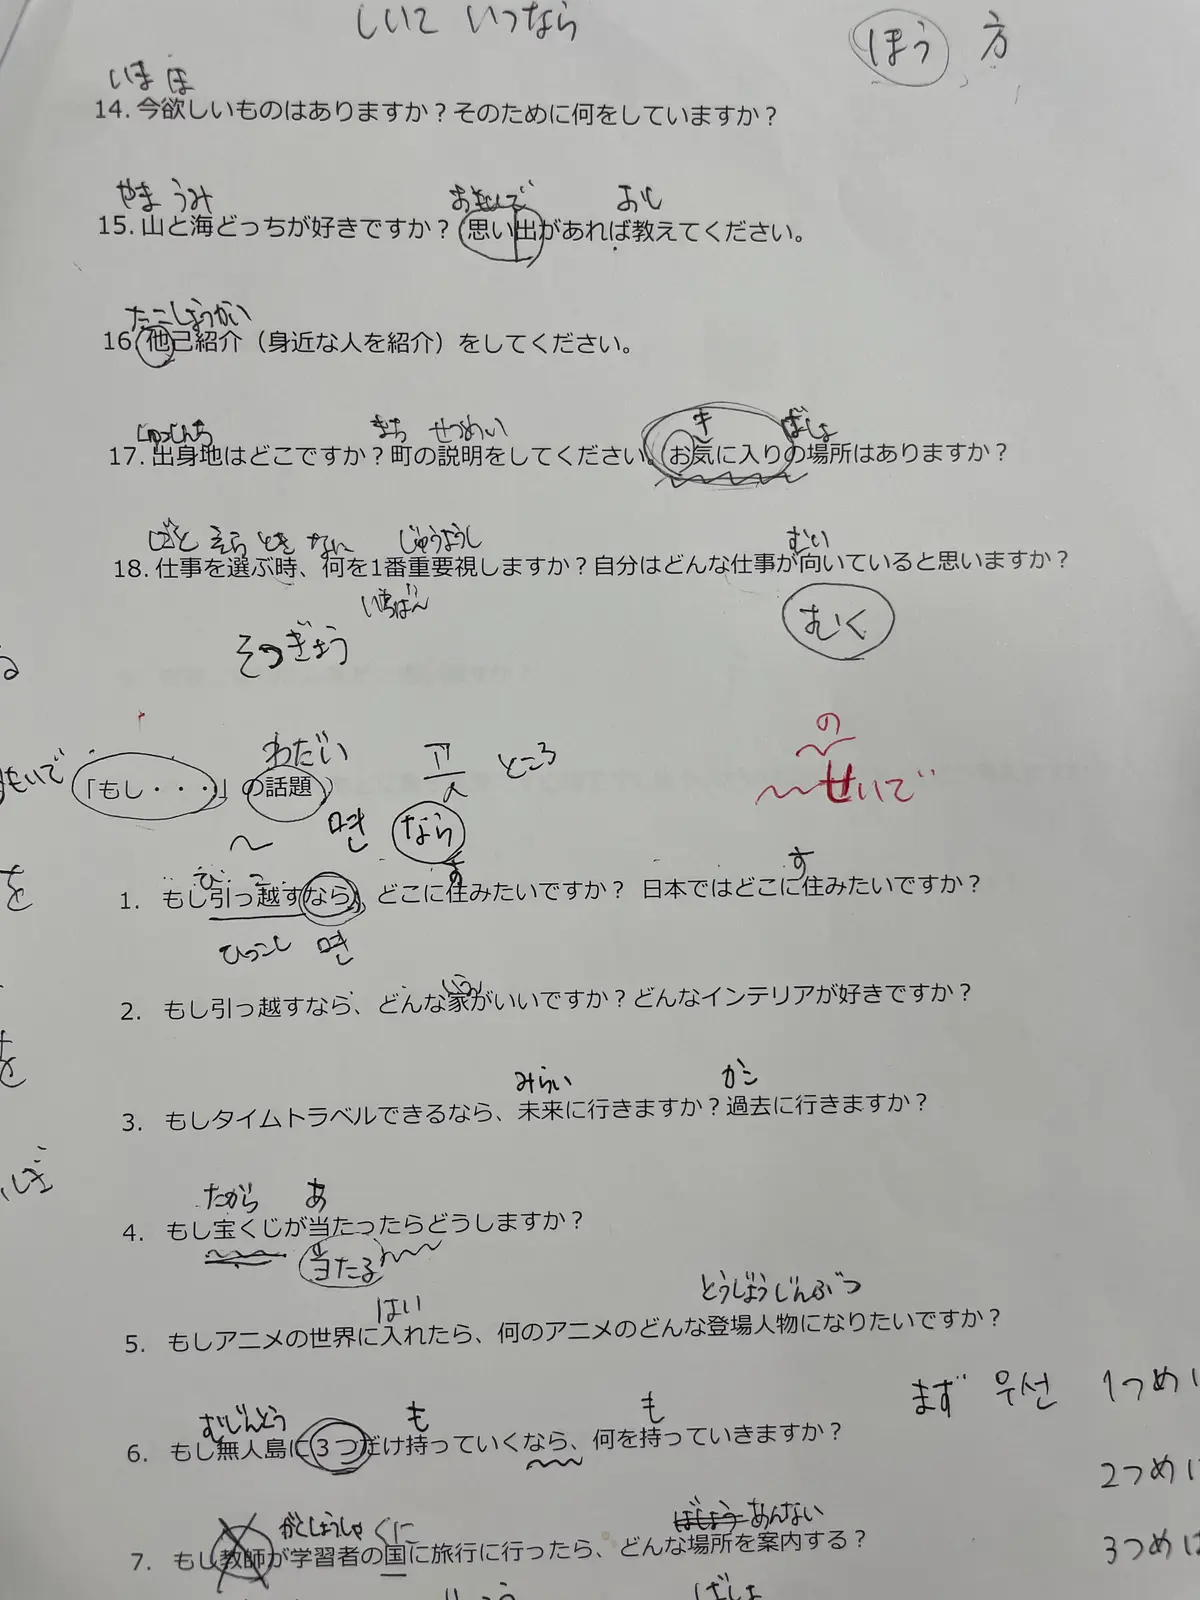 しいて いつなら
ほう 方
いま ほ
14. 今欲しいものはありますか？そのために何をしていますか？
やま うみ おもいで おし
15. 山と海どっちが好きですか？ 思い出があれば教えてください。
たこしょうかい
16 他己紹介（身近な人を紹介）をしてください。
しゅっしんち まち せつめい き ばしょ
17. 出身地はどこですか？町の説明をしてください。お気に入りの場所はありますか？
しごと えら とき なに じゅうようし むい
18. 仕事を選ぶ時、何を1番重要視しますか？自分はどんな仕事が向いていると思いますか？
いちばん
そつぎょう
むく
の
〜せいで
わだい ところ
「もし・・・」の話題
〜 면 なら
ひ こ す す
1. もし引っ越すなら、どこに住みたいですか？ 日本ではどこに住みたいですか？
ひっこし 면
いえ
2. もし引っ越すなら、どんな家がいいですか？どんなインテリアが好きですか？
みらい かこ
3. もしタイムトラベルできるなら、未来に行きますか？過去に行きますか？
たから あ
4. もし宝くじが当たったらどうしますか？
当たる
はい とうじょうじんぶつ
5. もしアニメの世界に入れたら、何のアニメのどんな登場人物になりたいですか？
まず 우선 1つめは
むじんとう も も
6. もし無人島に３つだけ持っていくなら、何を持っていきますか？
2つめは
がくしゅうしゃ くに あんない
7. もし教師が学習者の国に旅行に行ったら、どんな場所を案内する？
3つめは
ばしょ